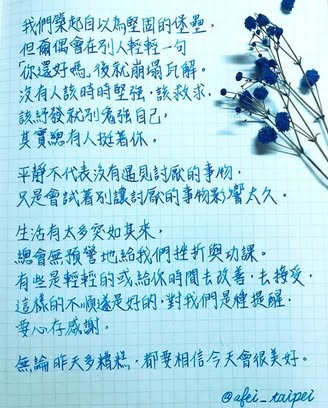 我們築起自以為堅固的堡壘，
但爾偶會在別人輕輕一句
「你還好嗎」後就崩塌瓦解。
沒有人該時時堅強，該救求、
該紓發就別岩強自己，
其實總有人挺著你。
平靜不代表沒有遇見討厭的事物，
只是會試著別讓討厭的事物影響太久。
生活有太多突如其來，
總會無預警地給我們挫折與功課。
有些是輕輕的或給你時間去改善、去接受，
這樣的不順遂是好的，對我們是種提醒，
要心存感謝。
無論昨天多糟糕，都要相信今天會很美好。
@afei_taipei